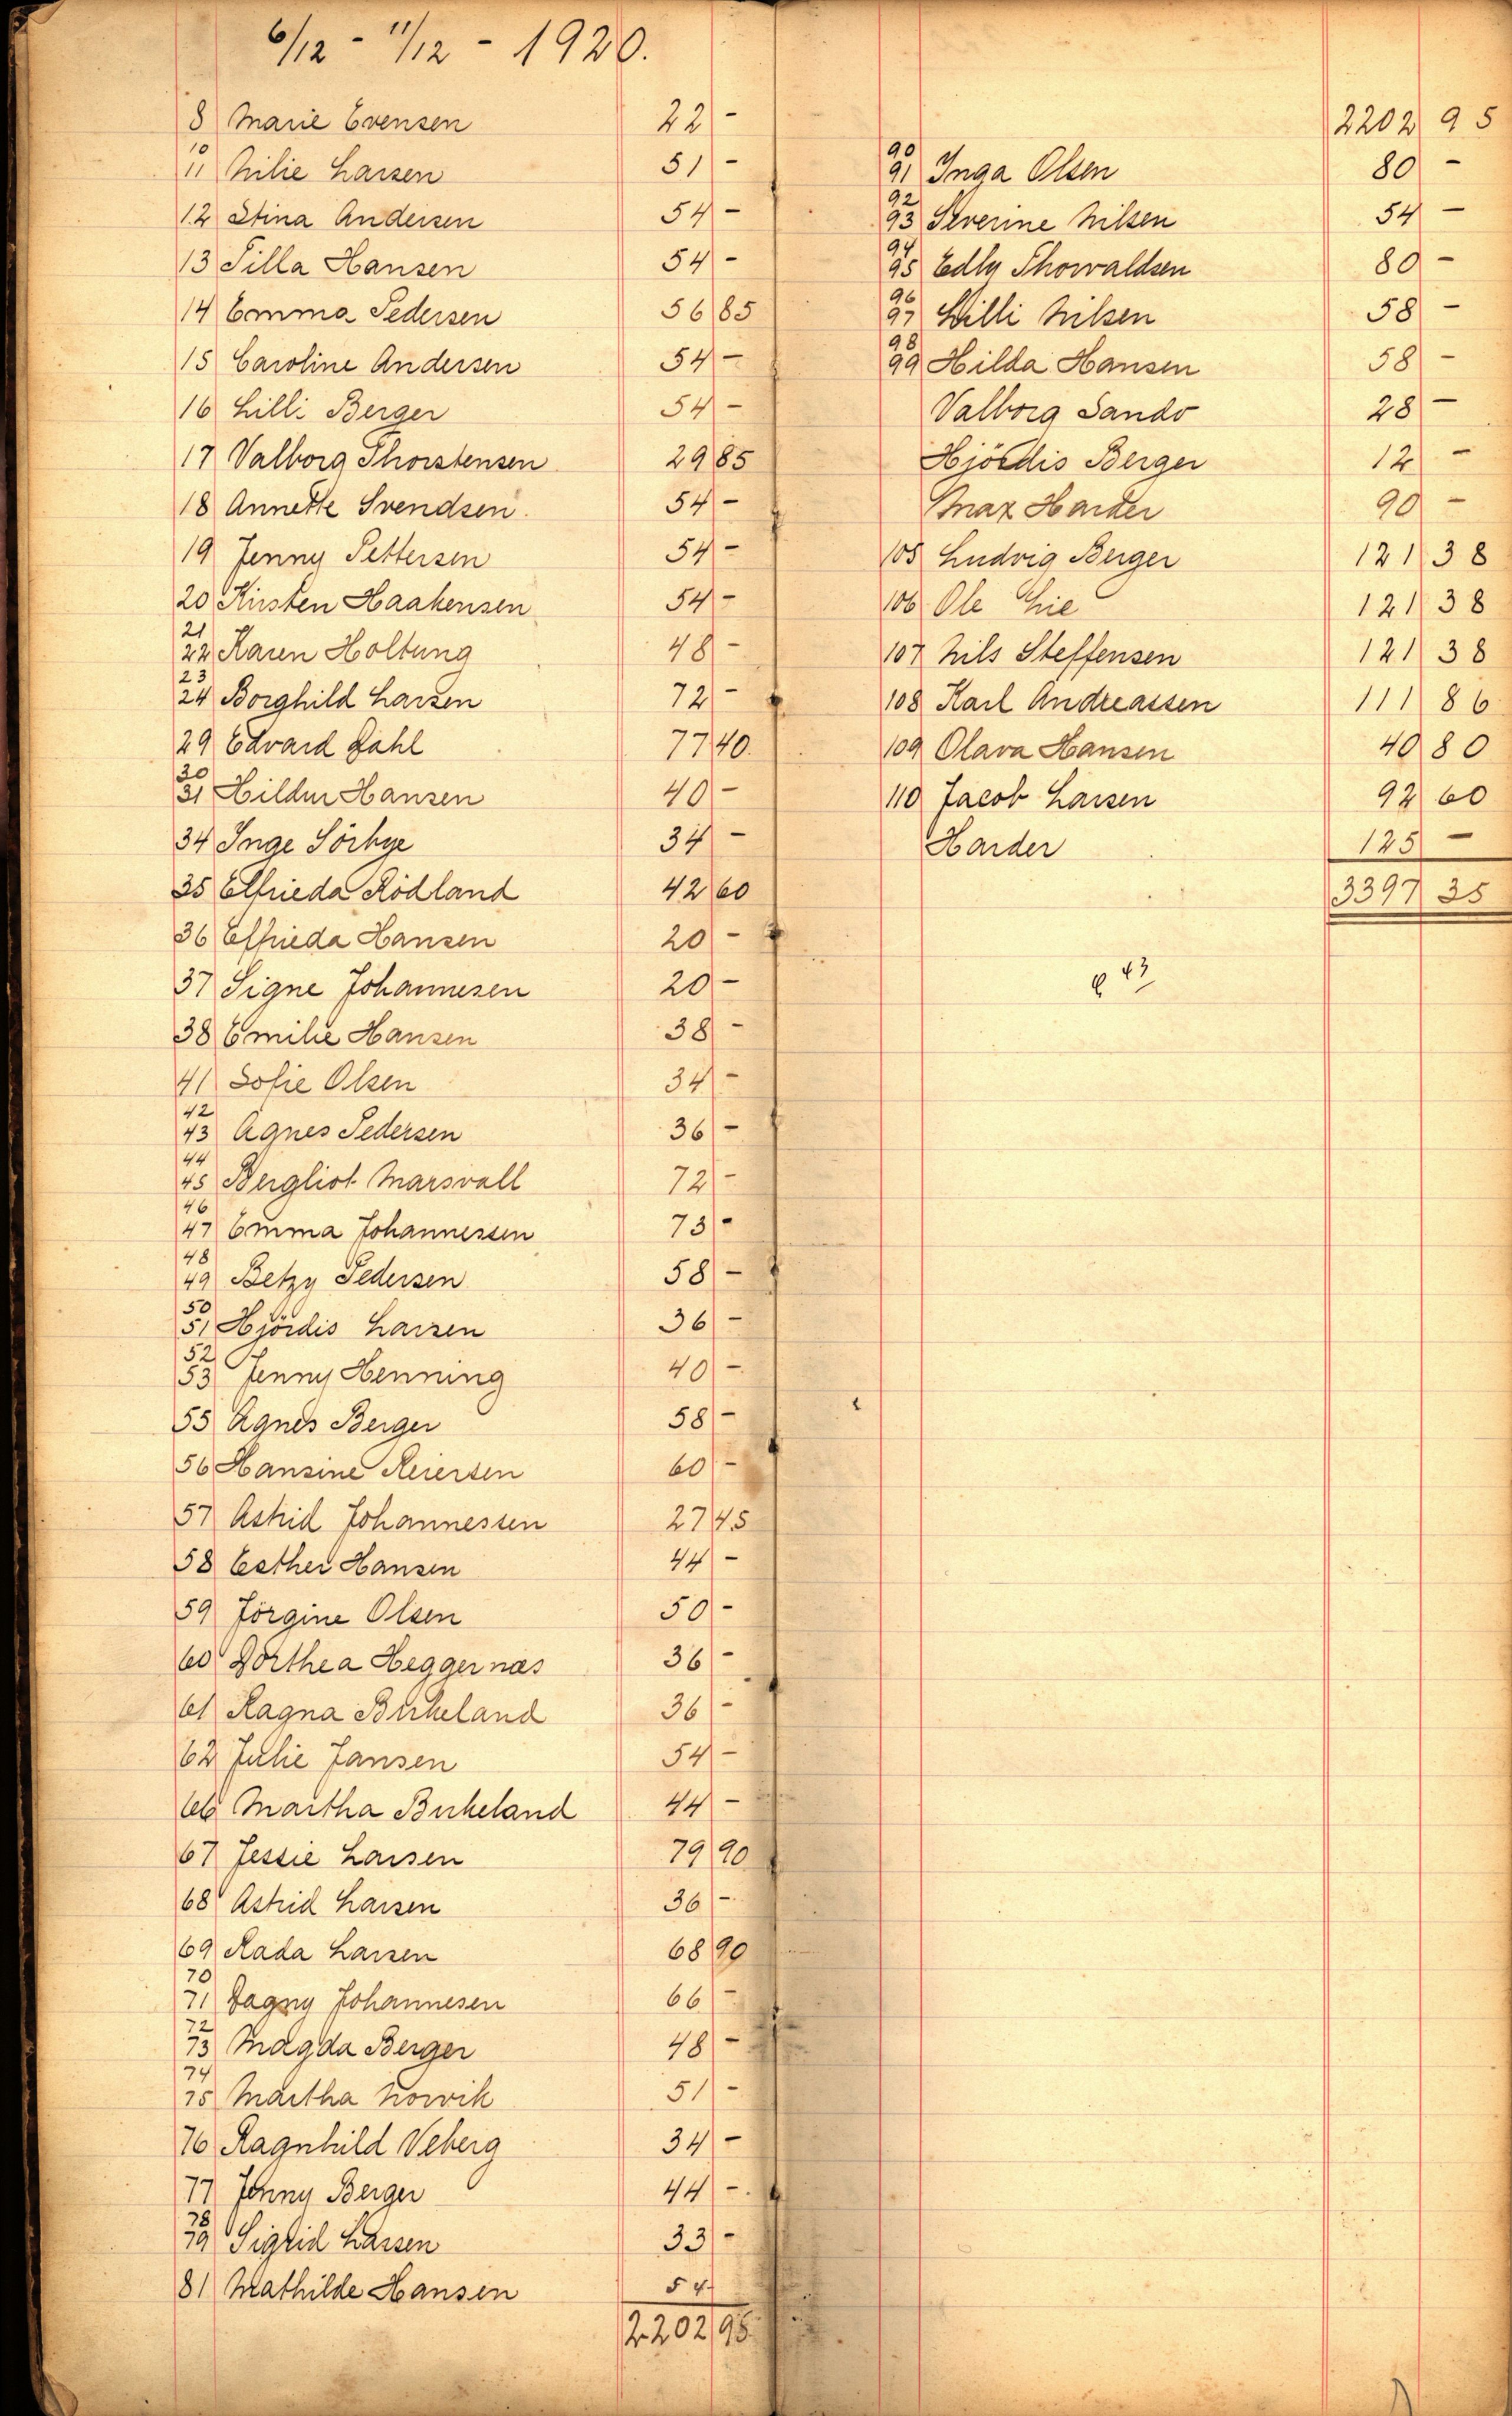 6/12 - 11/12 - 1920.
8 Marie Evensen 22 -
10
11 Nilie Larsen 51 -
12 Stina Andersen 54 -
13 Tilla Hansen 54 -
14 Emma Pedersen 56 85
15 Caroline Andersen 54 -
16 Lilli Berger 54 -
17 Valborg Thorstensen 29 85
18 Annette Svendsen. 54 -
19 Jenny Pettersen 54 -
20 Kirsten Haakensen 54 -
21
22 Karen Holtung 48 -
23
24 Borghild Larsen 72 -
29 Edvard Dahl 77 40
30
31 Hildur Hansen 40 -
34 Inge Sörbye 34 -
35 Elfrieda Rödland 42 60
36 Elfrieda Hansen 20 -
37 Signe Johannesen 20 -
38 Emilie Hansen 38 -
41 Sofie Olsen 34 -
42
43 Agnes Pedersen 36 -
44
45 Bergliot Marsvall 72 -
46
47 Emma Johannessen 73 -
48
49 Betzy Pedersen 58 -
50
51 Hjördis Larsen 36 -
52
53 Jenny Henning 40 -
55 Agnes Berger 58 -
56 Hansine Reiersen 60 -
57 Astrid Johannessen 27 45
58 Esther Hansen 44 -
59 Jörgine Olsen 50 -
60 Dorthea Heggernæs 36 -
61 Ragna Birkeland 36 -
62 Julie Jansen 54 -
66 Martha Birkeland 44 -
67 Jessie Larsen 79 90
68 Astrid Larsen 36 -
69 Rada Larsen 68 90
70
71 Dagny Johannesen 66 -
72
73 Magda Berger 48 -
74
75 Martha Norvik 51 -
76 Ragnhild Veberg 34 -
77 Jenny Berger 44 -.
78
79 Sigrid Larsen 33 -
81 Mathilde Hansen 54
2202 95
2202 95
90
91 Inga Olsen 80 -
92
93 Severine Nilsen 54 -
94
95 Edly Thorvaldsen 80 -
96
97 Lilli Nilsen 58 -
98
99 Hilda Hansen 58 -
Valborg Sando 28 -
Hjördis Berger 12 -
Max Harder 90 -
105 Ludvig Berger 121 38
106 Ole Lie 121 38
107 Nils Steffensen 121 38
108 Karl Andreassen 111 86
109 Olava Hansen 40 80
110 Jacob Larsen 92 60
Harder 125 -
3397 35